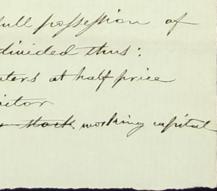 full possession of
divided thus:
ators at half price
itor
stock working capital